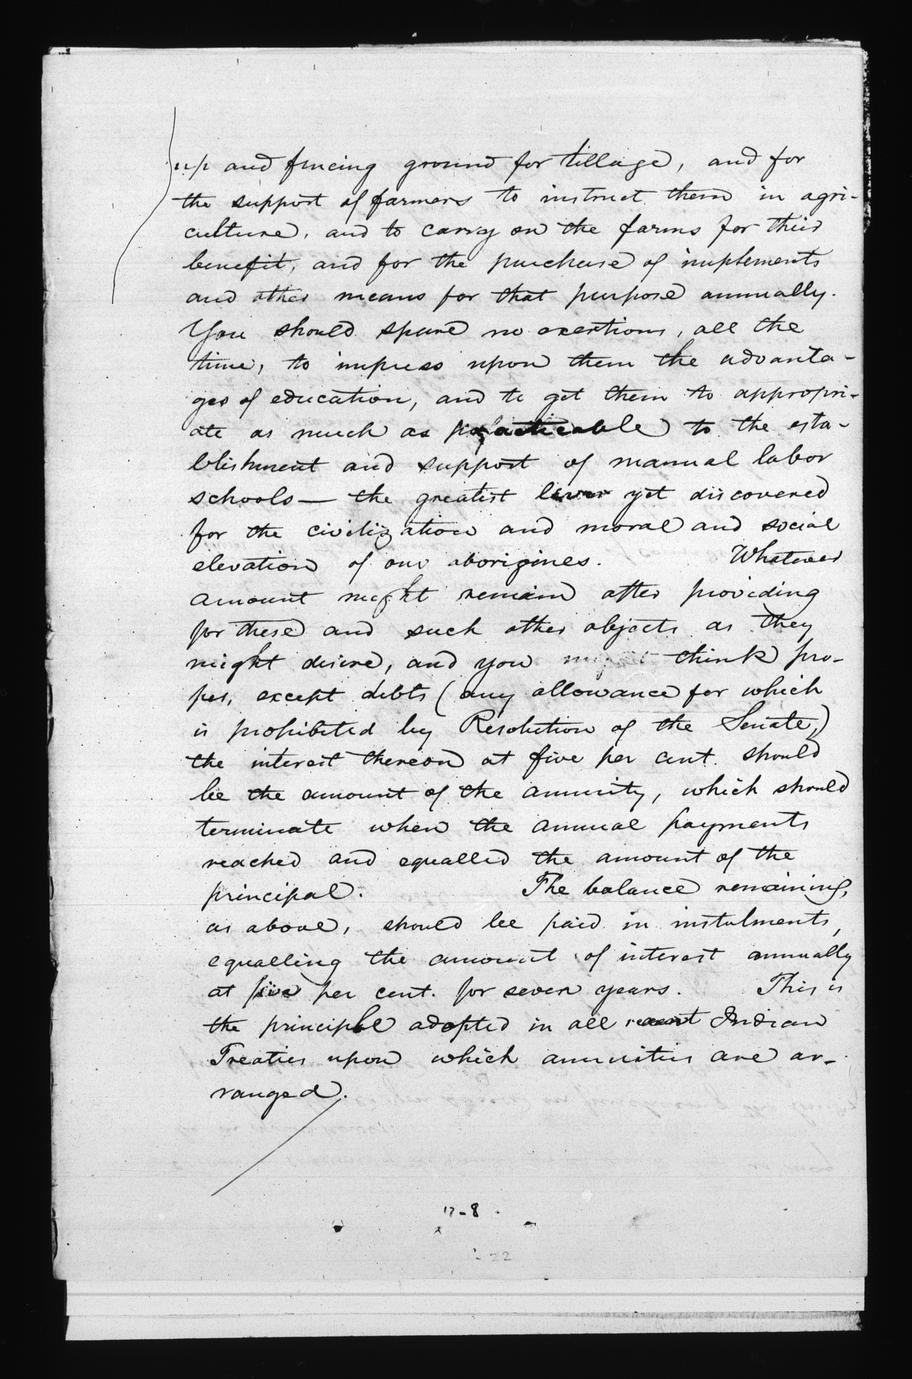 up and fencing ground for tillage, and for
the support of farmers to instruct them in agri-
culture, and to carry on the farms for their
benefit, and for the purchase of implements
and other means for that purpose annually.
You should spare no exertions, all the
time, to impress upon them the advanta-
ges of education, and to get them to appropri-
ate as much as practicable to the esta-
blishment and support of manual labor
schools — the greatest lever yet discovered
for the civilization and moral and social
elevation of our aborigines. Whatever
amount might remain after providing
for these and such other objects as they
might desire, and you might think pro-
per, except debts (any allowance for which
is prohibited by Resolution of the Senate,)
the interest thereon at five per cent. should
be the amount of the annuity, which should
terminate when the annual payments
reached and equalled the amount of the
principal. The balance remaining,
as above, should be paid in instalments,
equalling the amount of interest annually
at five per cent. for seven years. This is
the principle adopted in all recent Indian
Treaties upon which annuities are ar-
ranged.
17-8.
22